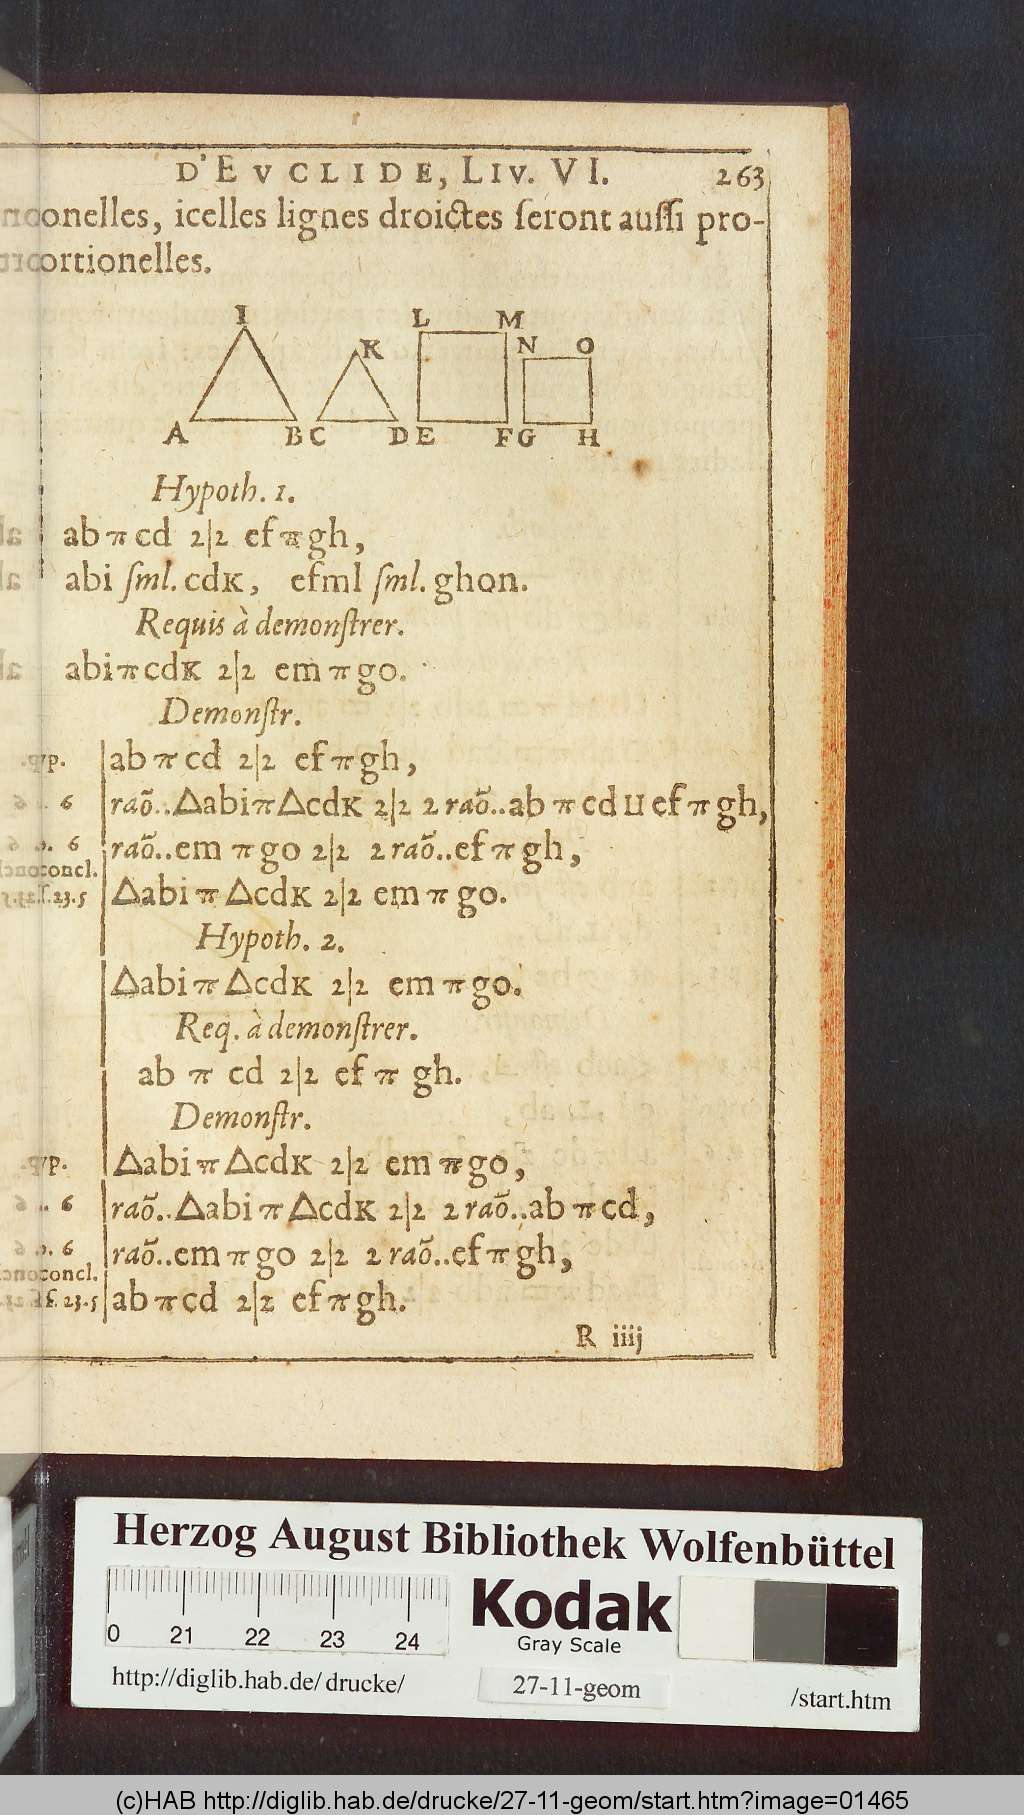 D'EVCLIDE, LIV. VI. 263
onelles, icelles lignes droictes ſeront auſſi pro-
ortionelles.
I L M
K N O
A B C D E F G H
Hypoth. 1.
ab π cd 2|2 ef π gh,
abi ſml. cdK, efml ſml. ghon.
Requis à demonſtrer.
abi π cdK 2|2 em π go.
Demonſtr.
yp. ab π cd 2|2 ef π gh,
6 raõ..Δabi π ΔcdK 2|2 2 raõ..ab π cd U ef π gh,
6 raõ..em π go 2|2 2 raõ..ef π gh,
concl.
23.5 Δabi π ΔcdK 2|2 em π go.
Hypoth. 2.
Δabi π ΔcdK 2|2 em π go.
Req. à demonſtrer.
ab π cd 2|2 ef π gh.
Demonſtr.
yp. Δabi π ΔcdK 2|2 em π go,
6 raõ..Δabi π ΔcdK 2|2 2 raõ..ab π cd,
6 raõ..em π go 2|2 2 raõ..ef π gh,
concl.
f. 23.5 ab π cd 2|2 ef π gh.
R iiij
Herzog August Bibliothek Wolfenbüttel
0 21 22 23 24
Kodak
Gray Scale
http://diglib.hab.de/drucke/ 27-11-geom /start.htm
(c)HAB http://diglib.hab.de/drucke/27-11-geom/start.htm?image=01465